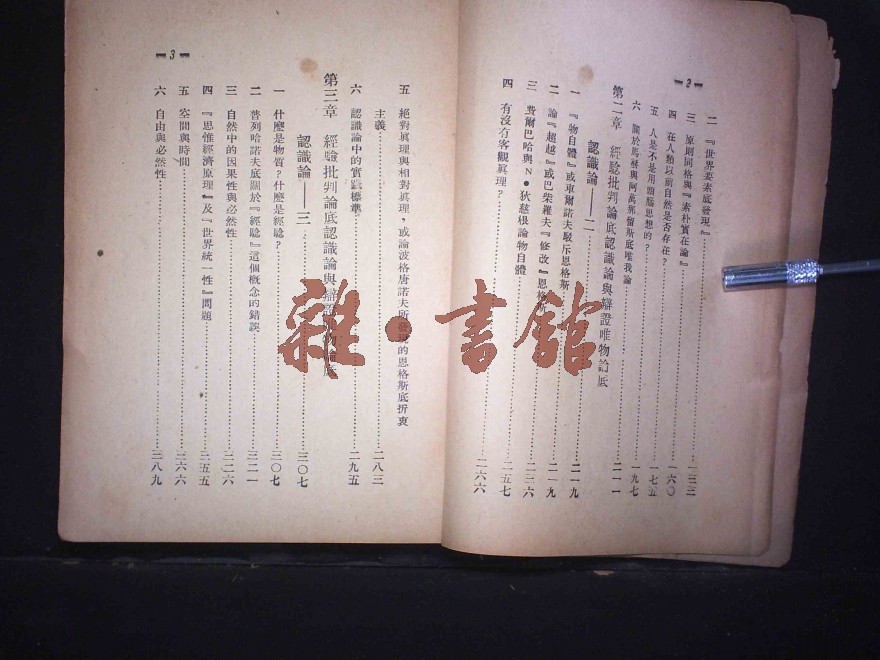 －2－
二　『世界要素底發現』……一三三
三　原則同格與『素朴實在論』……
四　在人類以前自然是否存在？……一六〇
五　人是不是用頭腦思想的？……一七五
六　關於馬赫與阿萬那留斯底唯我論……一九七
第二章　經驗批判論底認識論與辯證唯物論底
認識論——二……二一一
一　『物自體』或車爾諾夫駁斥恩格斯……二一九
二　論『超越』或巴柴羅夫『修改』恩格斯……二一九
三　費爾巴哈與N・狄慈根論物自體……二三六
四　有沒有客觀眞理？……二五七
二六六
－3－
五　絕對眞理與相對眞理，或論波格唐諾夫所發現的恩格斯底折衷
主義……二八三
六　認識論中的實踐標準……二九五
第三章　經驗批判論底認識論與辯證唯物論底
認識論——三……三〇七
一　什麼是物質？什麼是經驗？……三〇七
二　普列哈諾夫底關於『經驗』這個概念的錯誤……三二一
三　自然中的因果性與必然性……三二六
四　『思惟經濟原理』及『世界統一性』問題……三五五
五　空間與時間……三六六
六　自由與必然性……三八九
雜・書館